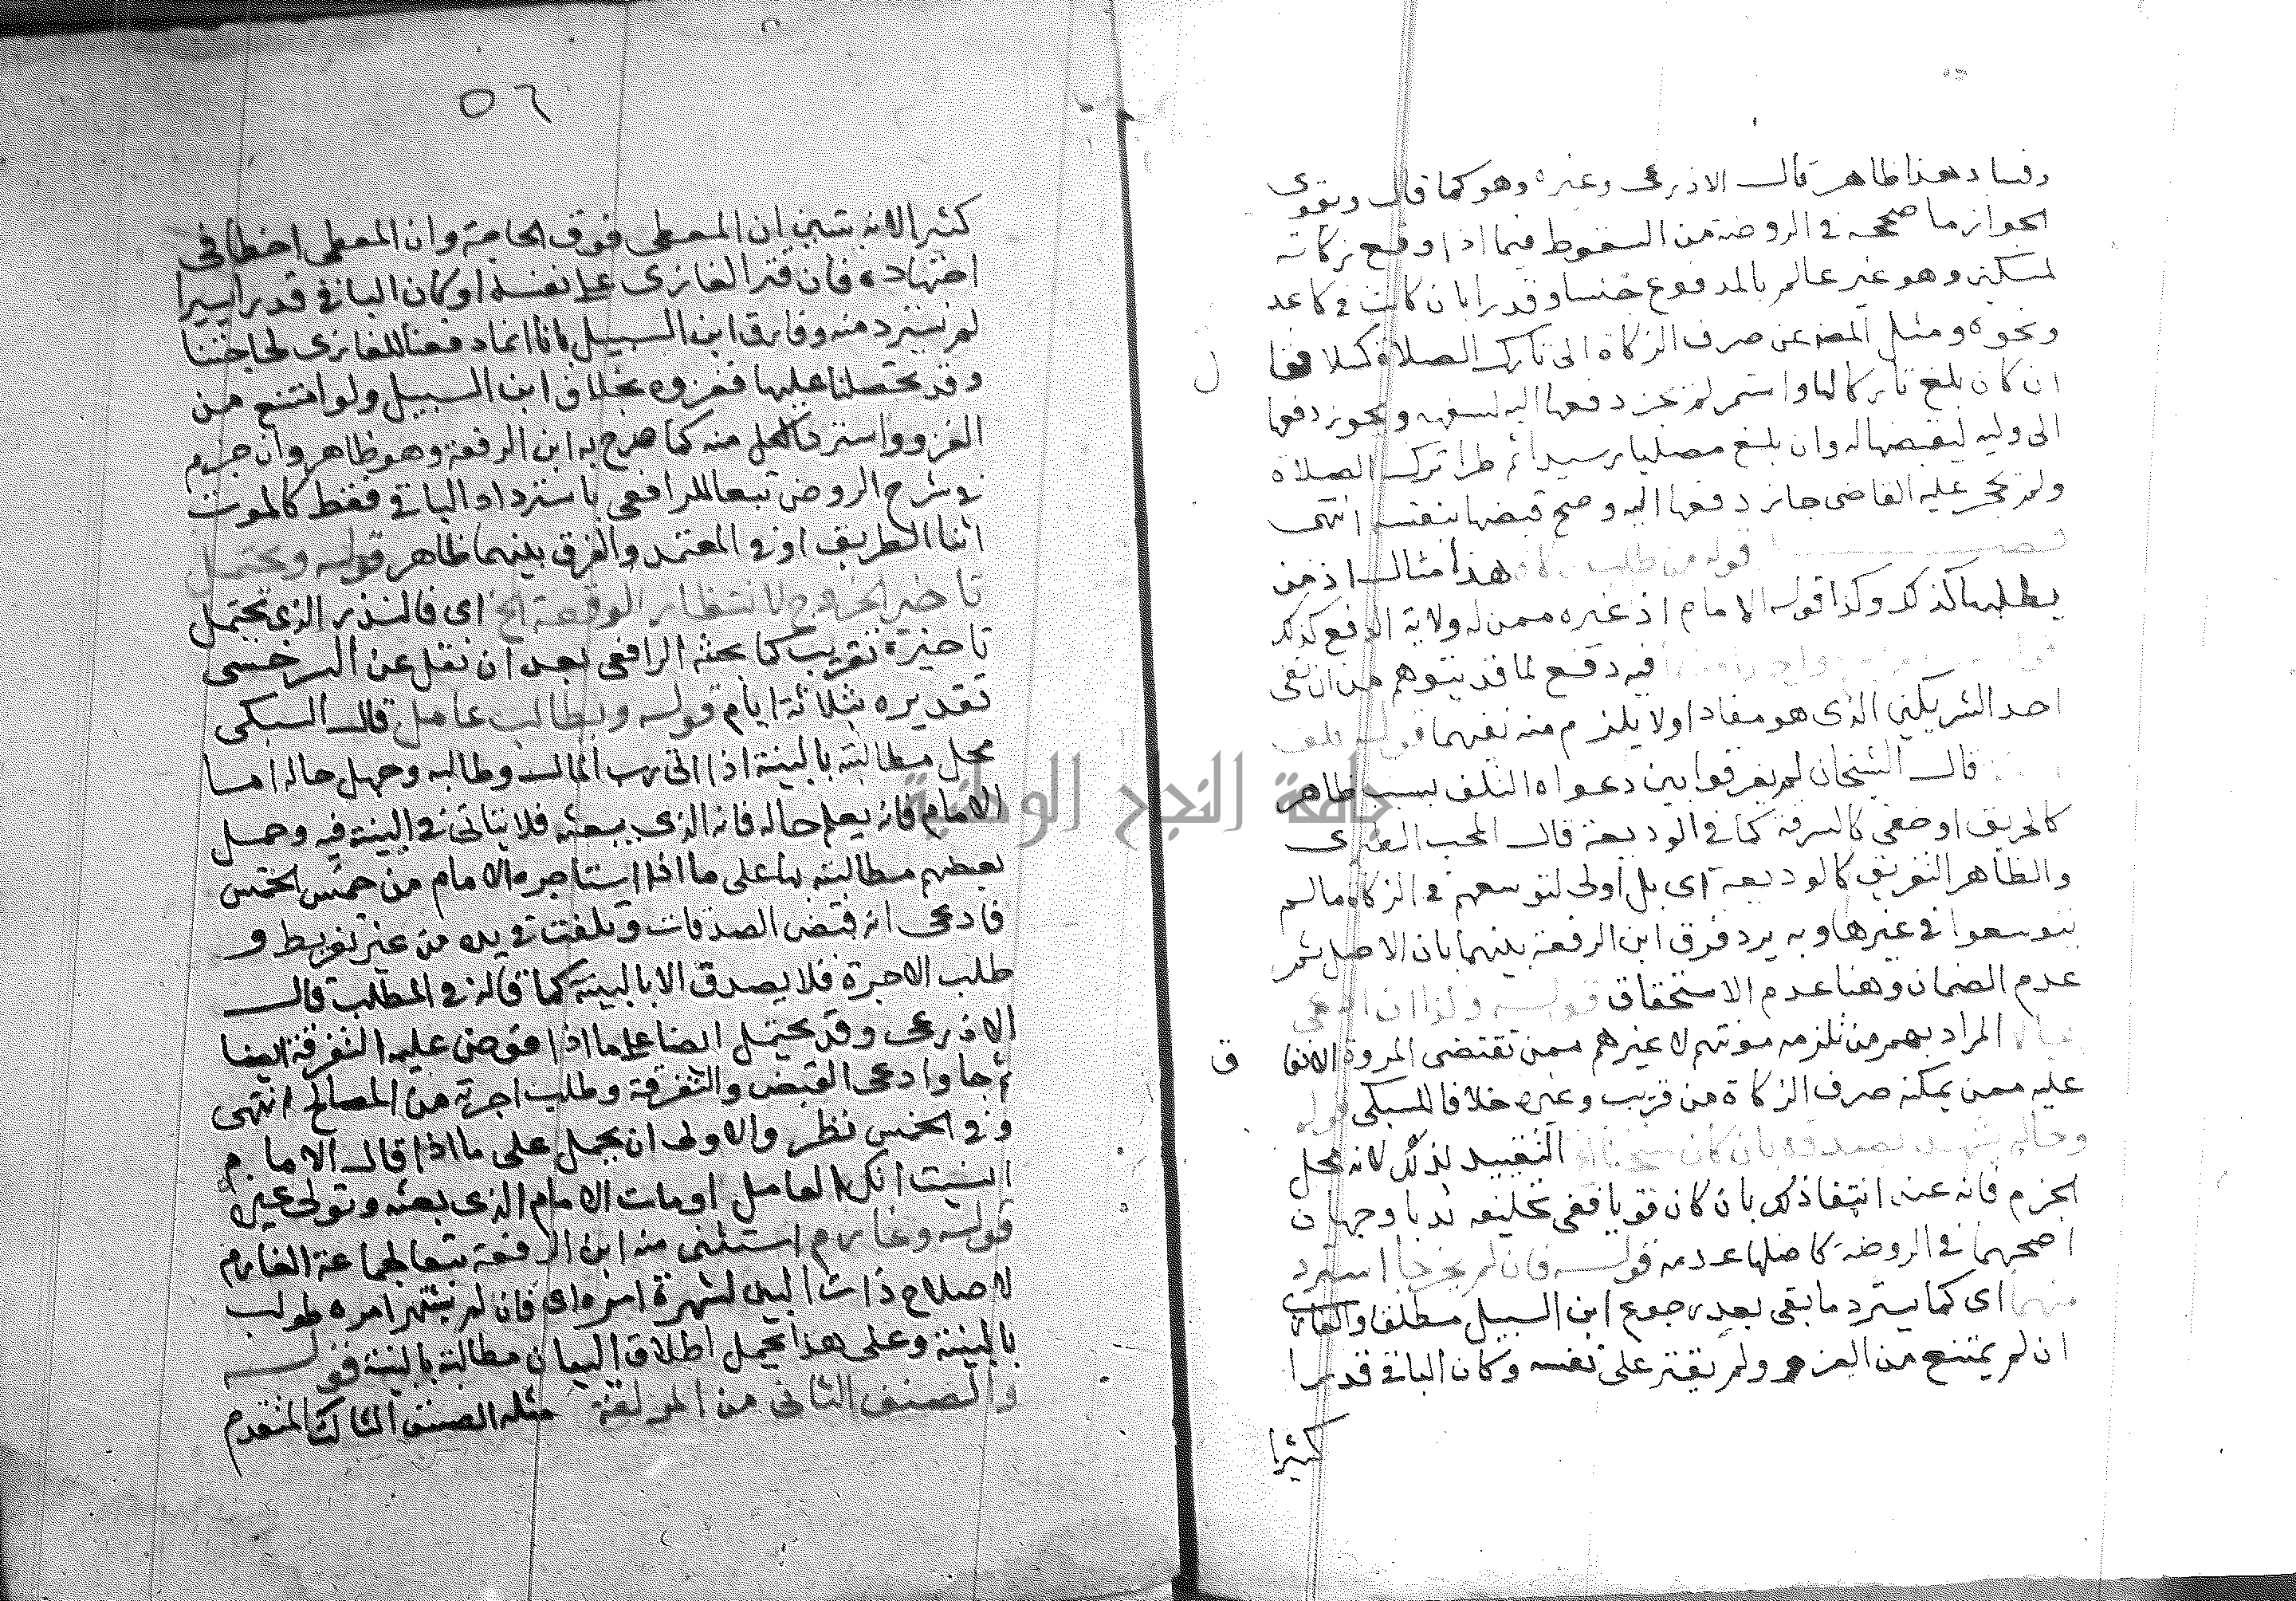 وفساد هذا ظاهر قال الاذرعى وغيره وهو كما قال ويقوى
الجواز ما صححه فى الروضة من السقوط فيما اذا وقع زكاته
لمسكين وهو غير عالم بالمدفوع جنسا وقدرا بان كانت فى كاغد
ونحوه ومثل المص عن صرف الزكاة الى تارك الصلاة كسلا فقا
ل
ان كان بلغ تاركا لها واستمر لم يجز دفعها اليه لسفهه ويجوز دفعها
الى وليه ليقبضها له وان بلغ مصليا رسيدا ثم طرا ترك الصلاة
ولم يحجر عليه القاضى جاز دفعها اليه وصح قبضها بنفسه انتهى
قوله من طلب هذا مثال اذ من
يطلبها كذلك وكذا قوله الامام اذ غيره ممن له ولاية الدفع كذلك
فيه دفع لما قد يتوهم من ان نفى
احد الشريكين الذى هو مفاد اولا يلزم منه نفيهما
قال الشيخان لم يفرقوا بين دعواه التلف بسبب ظاهر
كالحريق او خفى كالسرقة كما فى الوديعة قال المحب الطبرى
والظاهر التفريق كالوديعة اى بل اولى لتوسعهم فى الزكاة مالم
يتوسعوا فى غيرها وبه يرد فرق ابن الرفعة بينهما بان الاصل ثم
عدم الضمان وهنا عدم الاستحقاق قوله ولذا ان ادعى
عيالا المراد بهم من تلزمه مونتهم لا غيرهم ممن تقتضى المروة الانفا
ق
عليه ممن يمكنه صرف الزكاة من قريب وغيره خلافا للسبكى قوله
وحاله يشهد بصدقه بان كان التقييد بذلك لانه محل
الجزم فانه عند انتفا ذلك بان كان قويا ففى تحليفه ندبا وجهان
اصحهما فى الروضة كاصلها عدمه قوله فان لم يخرجا استرد
منهما اى كما يسترد ما بقى بعد رجوع ابن السبيل مطلقا والغارى
ان لم يمتنع من الغزو ولم يقتر على نفسه وكان الباقى قدرا
كثيرا
٥٦
كثيرا لانه تبين ان المعطى فوق الحاجة وان المعطى اخطا فى
اجتهاده فان قتر الغازى على نفسه او كان الباقى قدرا يسيرا
لم يسترد منه وفارق ابن السبيل بانا انما دفعنا للغازى لحاجتنا
وقد تحصلنا عليها فغزوه بخلاف ابن السبيل ولو امتنع من
الغزو واسترد الكل منه كما صرح به ابن الرفعة وهو ظاهر وان جزم
فى شرح الروض تبعا للرافعى باسترداد الباقى فقط كالموت
اثنا الطريق او فى المعتمد والفرق بينهما ظاهر قوله ويحتمل
تاخير الخروج لانتظار الوقعة الخ اى فالنذر الذى يحتمل
تاخيره تقريب كما بحثه الرافعى بعد ان نقل عن السرخسى
تقديره بثلاثة ايام قوله ويطالب عامل قال السبكى
محل مطالبته بالبينة اذا اتى رب المال وطالبه وجهل حاله اما
الامام فانه يعلم حاله فانه الذى يبعثه فلا يتاتى فى البينة فيه وحمل
بعضهم مطالبته بها على ما اذا استاجره الامام من خمس الخمس
فادعى انه قبض الصدقات وتلفت فى يده من غير تفريط و
طلب الاجرة فلا يصدق الا بالبينة كما قاله فى المطلب قال
الاذرعى وقد يحتمل ايضا على ما اذا فوض عليه التفرقة ايضا
ثم جا وادعى القبض والتفرقة وطلب اجرته من المصالح انتهى
وفى الخمس نظر والاولى ان يحمل على ما اذا قال الامام
انسيت انك العامل او مات الامام الذى بعثه وتولى غيره
قوله وغارم استثنى منه ابن الرفعة تبعا لجماعة الغارم
لاصلاح ذات البين لشهرة امره اى فان لم يشتهر امره طولب
بالبينة وعلى هذا يحمل اطلاق البيان مطالبة بالبينة قوله
والصنف الثانى من المولفة مثله الصنف الثالث المتقدم
جامعة النجاح الوطنية